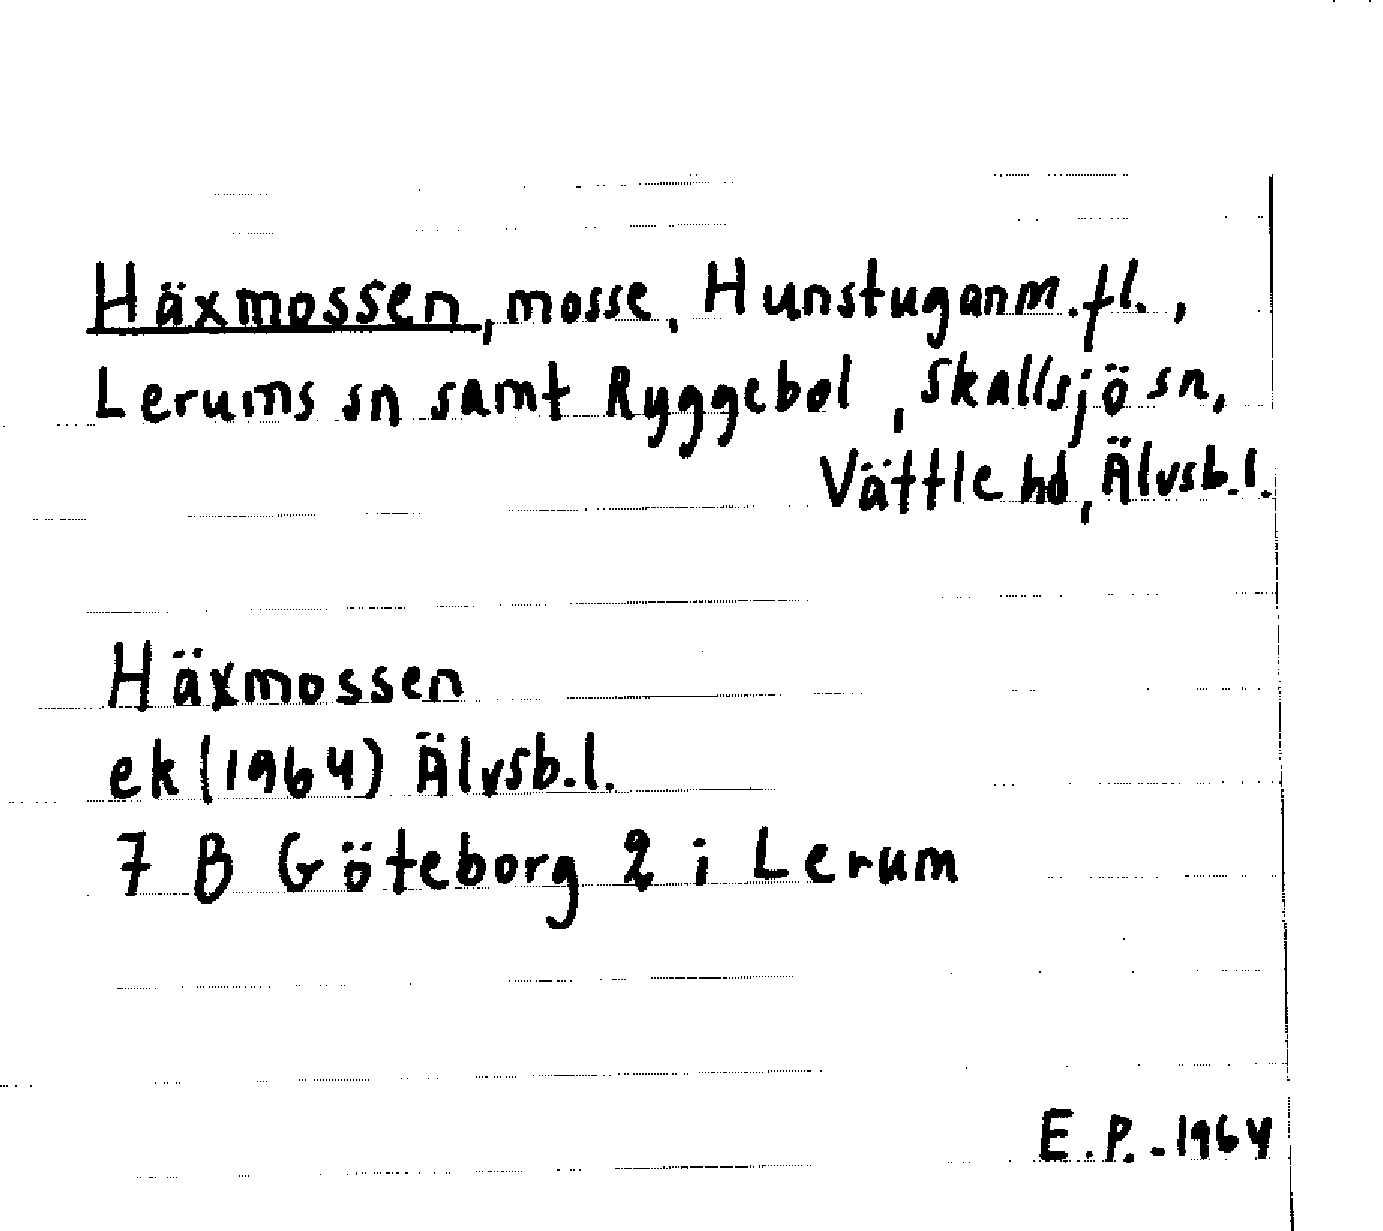 Häxmossen, mosse, Hunstugan m.fl.,
Lerums sn samt Ryggebol, Skallsjö sn,
Vättle hd, Älvsb.l.
Häxmossen
ek (1964) Älvsb.l.
7 B Göteborg 2 i Lerum
E.P.-1964